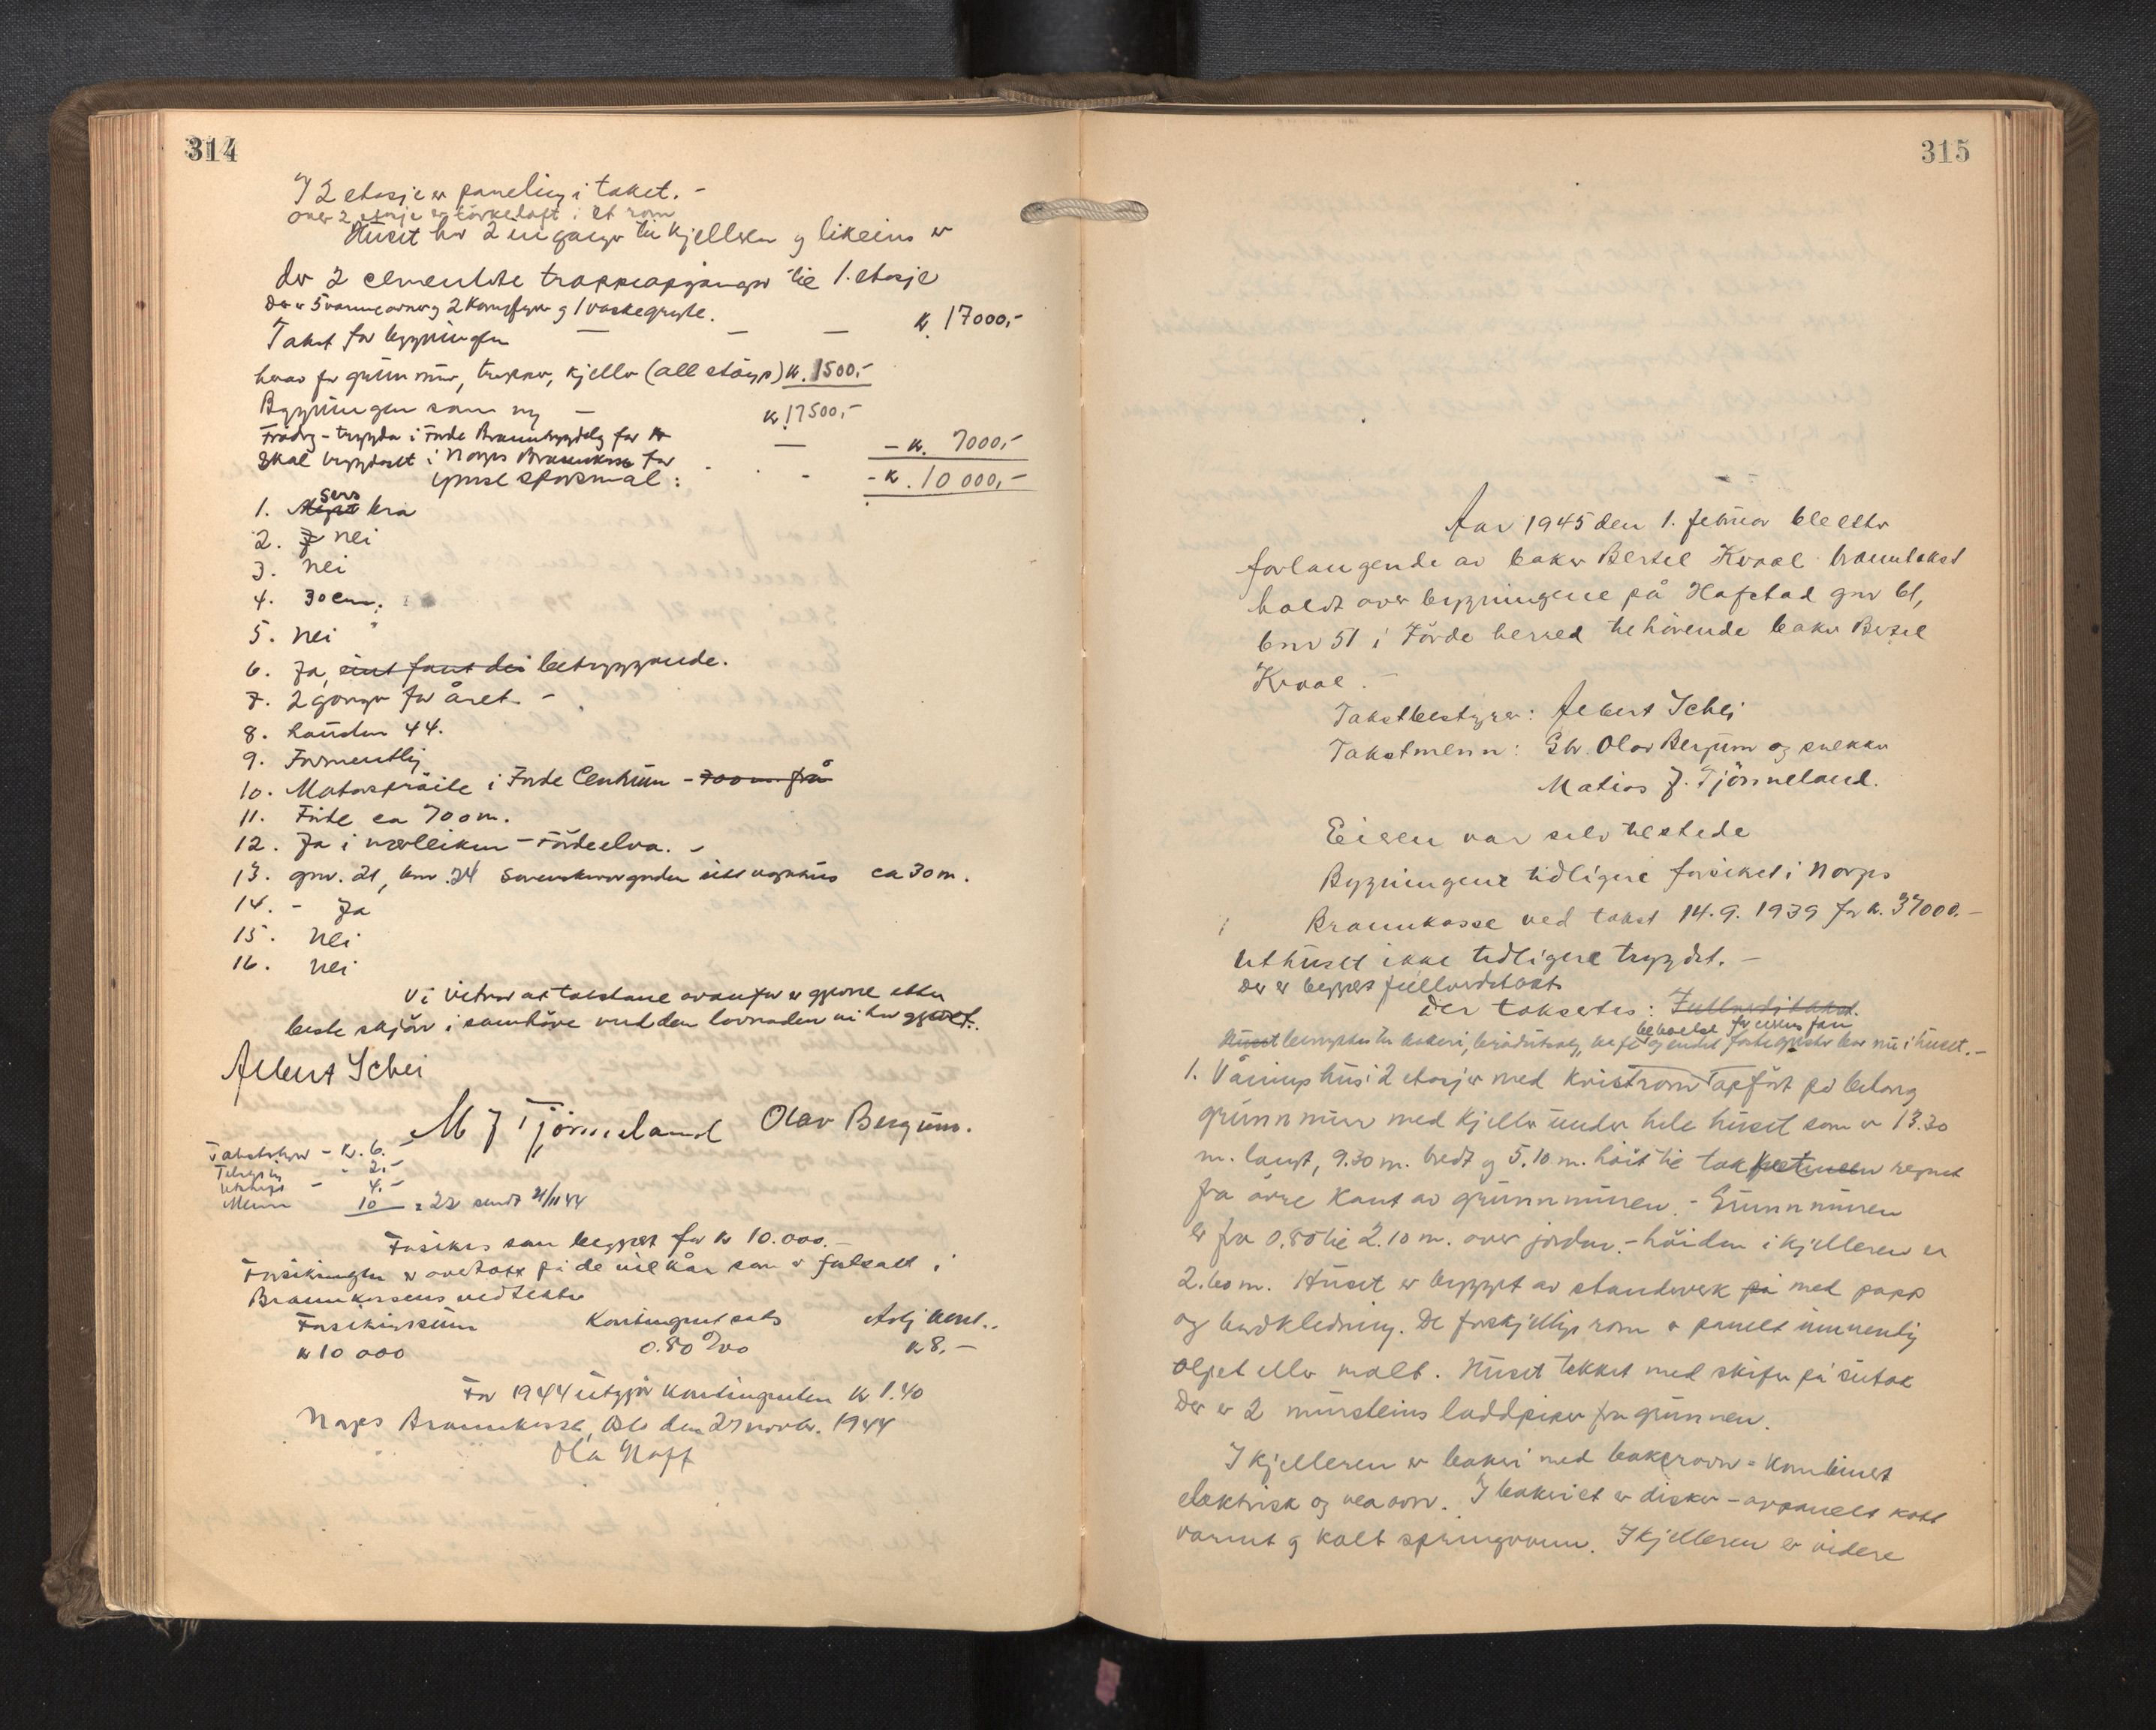 314
I 2 etasje er paneling i taket. -
over 2 etasje er törkeloft i et rom
Huset har 2 innganger til kjelleren og likeins er
der 2 cementerte trappeopganger til 1. etasje
Der er 5 vanneovner og 2 komfyrer og 1 vaskegryte.
Takst for bygningen — — — kr 17000,-
herav for grunnmur, trapper, kjeller (alt støypt) kr. 1500,-
Bygningen som ny — kr. 17500,-
Frådrag - trygda i Förde Branntrygdelag for kr — - kr. 7000,-
Skal trygdast i Norges Brannkasse for - kr. 10 000,-
Ymse spörsmål:
1. Sers bra
2. nei
3. nei
4. 30 cm.
5. nei
6. Ja, betryggande.
7. 2 gonger for året. -
8. hausten 44.
9. Forsvarlig
10. Motorspröite i Förde Centrum - 700 m frå
11. Förde ca 700 m.
12. Ja i nærleiken - Fördeelva. -
13. gnr. 21, bnr. 24 ca 30 m.
14. - Ja
15. nei
16. nei
Vi vitnar at takstane ovanfor er gjorde etter
beste skjön i samhöve med den lovnaden vi har gjevet.
Albert Schei
M J Tjönneland Olav Bergum.
Takstbestyrer - kr. 6.-
- 2.-
- 4.-
Menn 10 = 22 sendt 21/11 44
Forsikres som begjært for kr 10.000.-
Forsikringen er overtatt på de vilkår som er fastsatt i
Brannkassens vedtekter
Forsikringssum Kontingentsats Årlig kont..
kr 10 000 0.80 ‰ kr 8.-
For 1944 utgjör kontingenten kr 1.40
Norges Brannkasse, Oslo den 27 novbr. 1944
Ola Næss
315
Aar 1945 den 1. februar ble etter
forlangende av baker Bertel Kvaal branntakst
holdt over bygningene på Hafstad gnr 61,
bnr 51 i Förde herred tilhörende baker Bertel
Kvaal. -
Takstbestyrer: Albert Schei
Takstmenn: Olav Bergum og snekker
Matias J. Tjönneland.
Eieren var selv tilstede
Bygningene tidligere forsikret i Norges
Brannkasse ved takst 14.9.1939 for kr. 37000.-
Uthuset ikke tidligere trygdet. -
Der er begjært fullverditakst
Der takseres: Fullverditakst.
beboelse for eieren
Huset benyttes til bakeri, brödutsalg, kafe og endel faste gjester bor nu i huset. -
1. Våningshus i 2 etasjer med kvistrom opfört på betong
grunnmur med kjeller under hele huset som er 13.30
m. langt, 9.30 m. bredt og 5.10 m. höit til taket regnet
fra övre kant av grunnmuren. - Grunnmuren
er fra 0.80 til 2.10 m. over jorden. - höiden i kjelleren er
2.60 m. Huset er bygget av standverk på med papp
og bordkledning. De forskjellige rom er panelt innvendig
oljet eller malt. Huset tekket med skifer på sutak
Der er 2 mursteins loddpiper fra grunnen.
I kjelleren er bakeri med bakerovn - kombinert
elektrisk og vedovn. I bakeriet er disker - oppanelt kott
varmt og kalt springvann. I kjelleren er videre